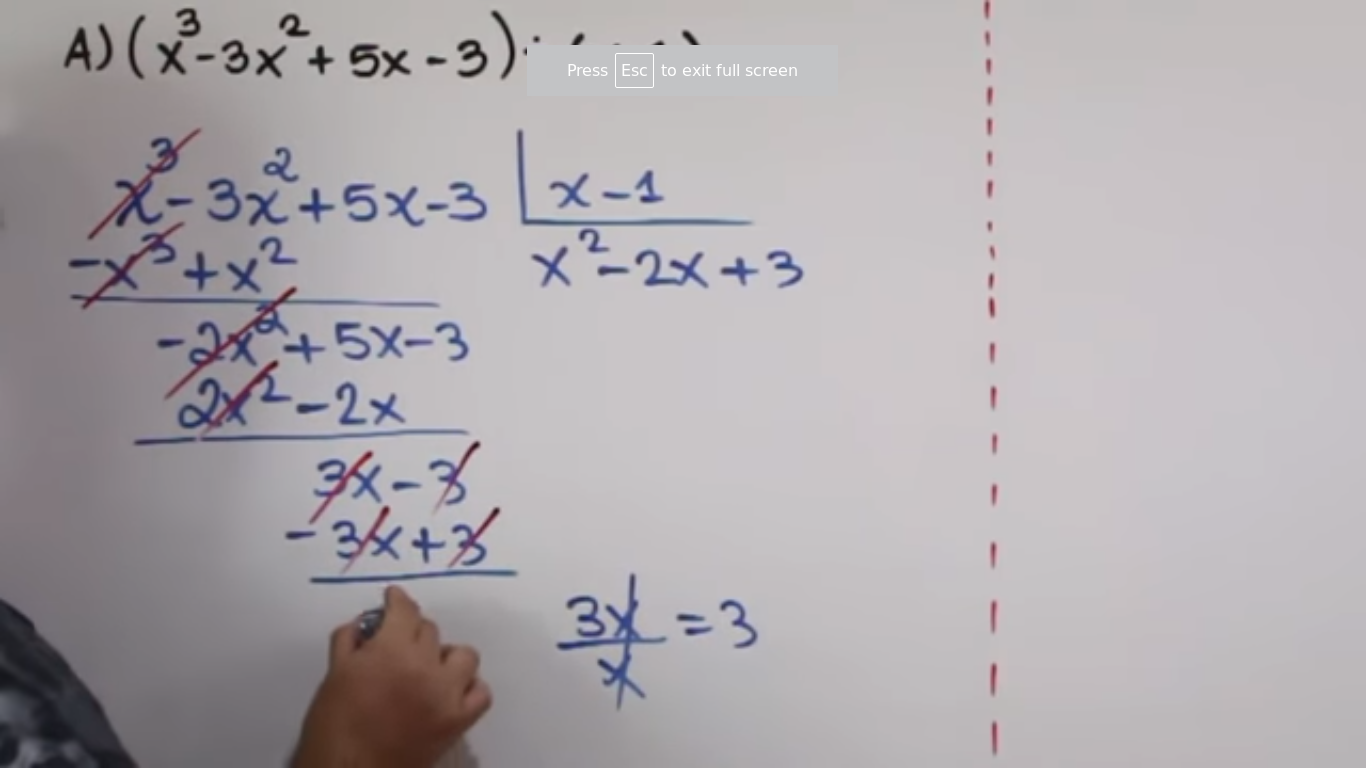 A) (x³-3x²+5x-3):
Press Esc to exit full screen
x³-3x²+5x-3 x-1
-x³+x² x²-2x+3
-2x²+5x-3
2x²-2x
3x-3
-3x+3
3x/x = 3